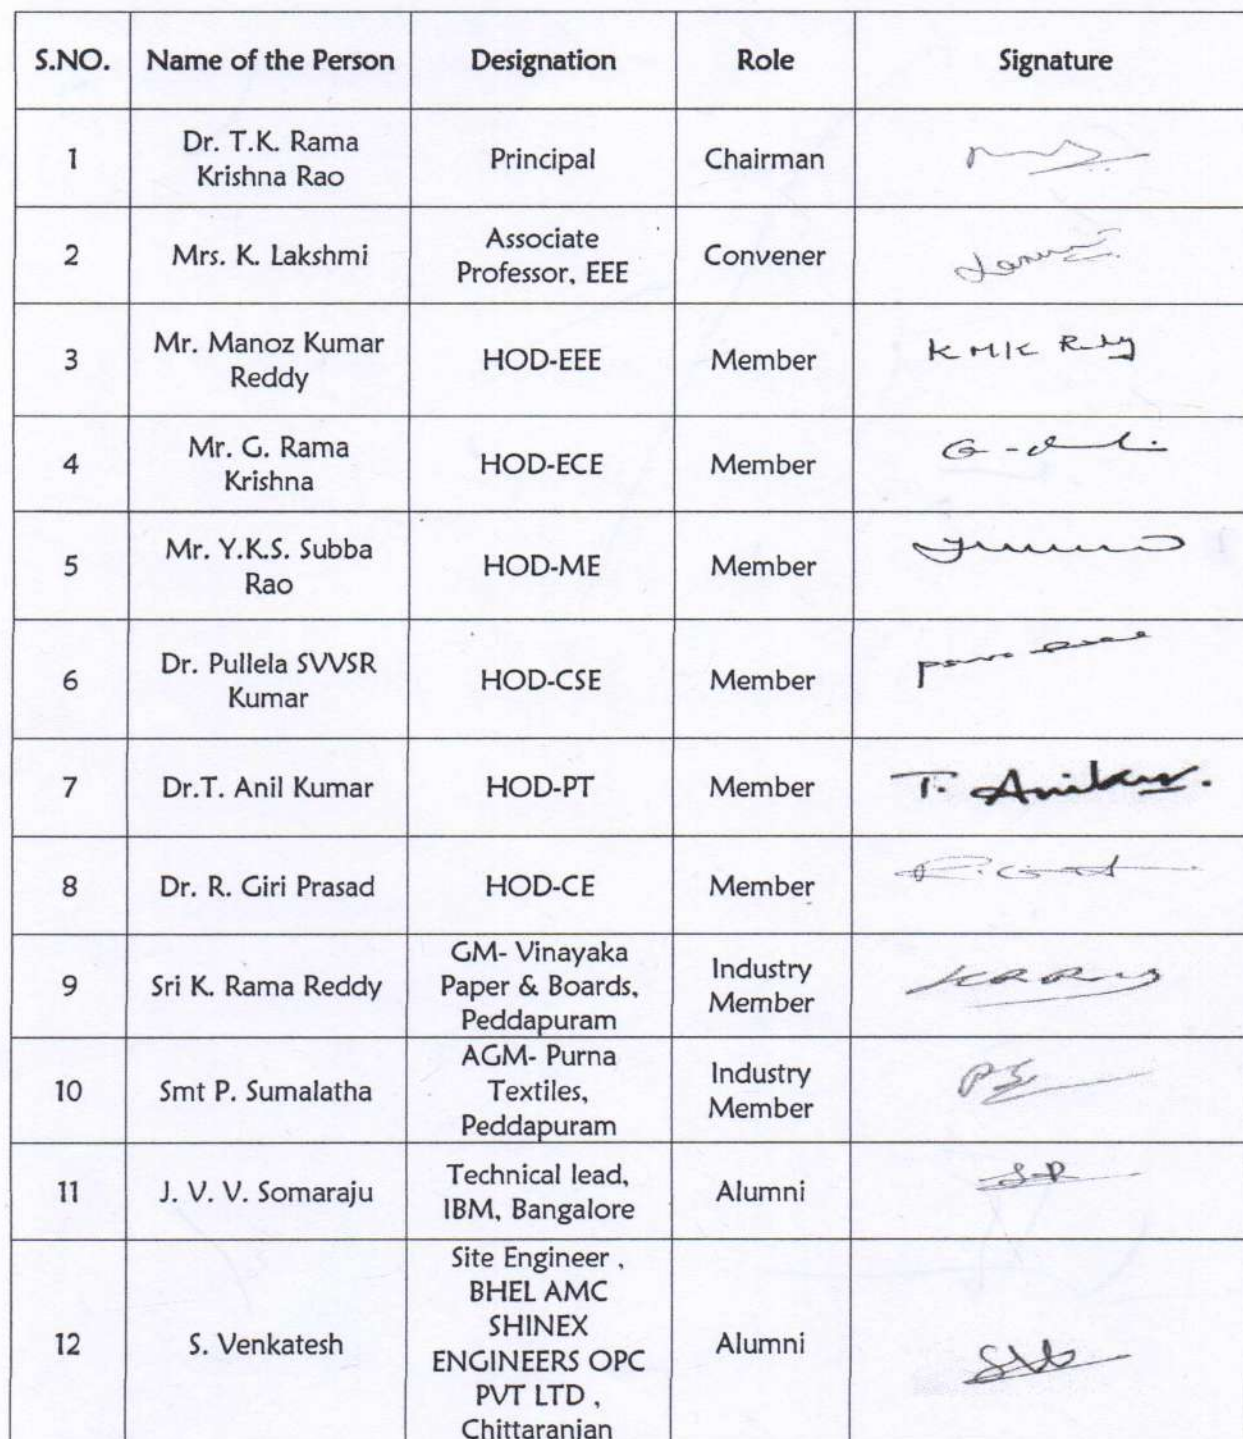 S.NO. Name of the Person Designation Role Signature
1 Dr. T.K. Rama Krishna Rao Principal Chairman
2 Mrs. K. Lakshmi Associate Professor, EEE Convener
3 Mr. Manoz Kumar Reddy HOD-EEE Member K M K Reddy
4 Mr. G. Rama Krishna HOD-ECE Member
5 Mr. Y.K.S. Subba Rao HOD-ME Member
6 Dr. Pullela SVVSR Kumar HOD-CSE Member
7 Dr.T. Anil Kumar HOD-PT Member
8 Dr. R. Giri Prasad HOD-CE Member
9 Sri K. Rama Reddy GM- Vinayaka Paper & Boards, Peddapuram Industry Member
10 Smt P. Sumalatha AGM- Purna Textiles, Peddapuram Industry Member
11 J. V. V. Somaraju Technical lead, IBM, Bangalore Alumni
12 S. Venkatesh Site Engineer , BHEL AMC SHINEX ENGINEERS OPC PVT LTD , Chittaranjan Alumni